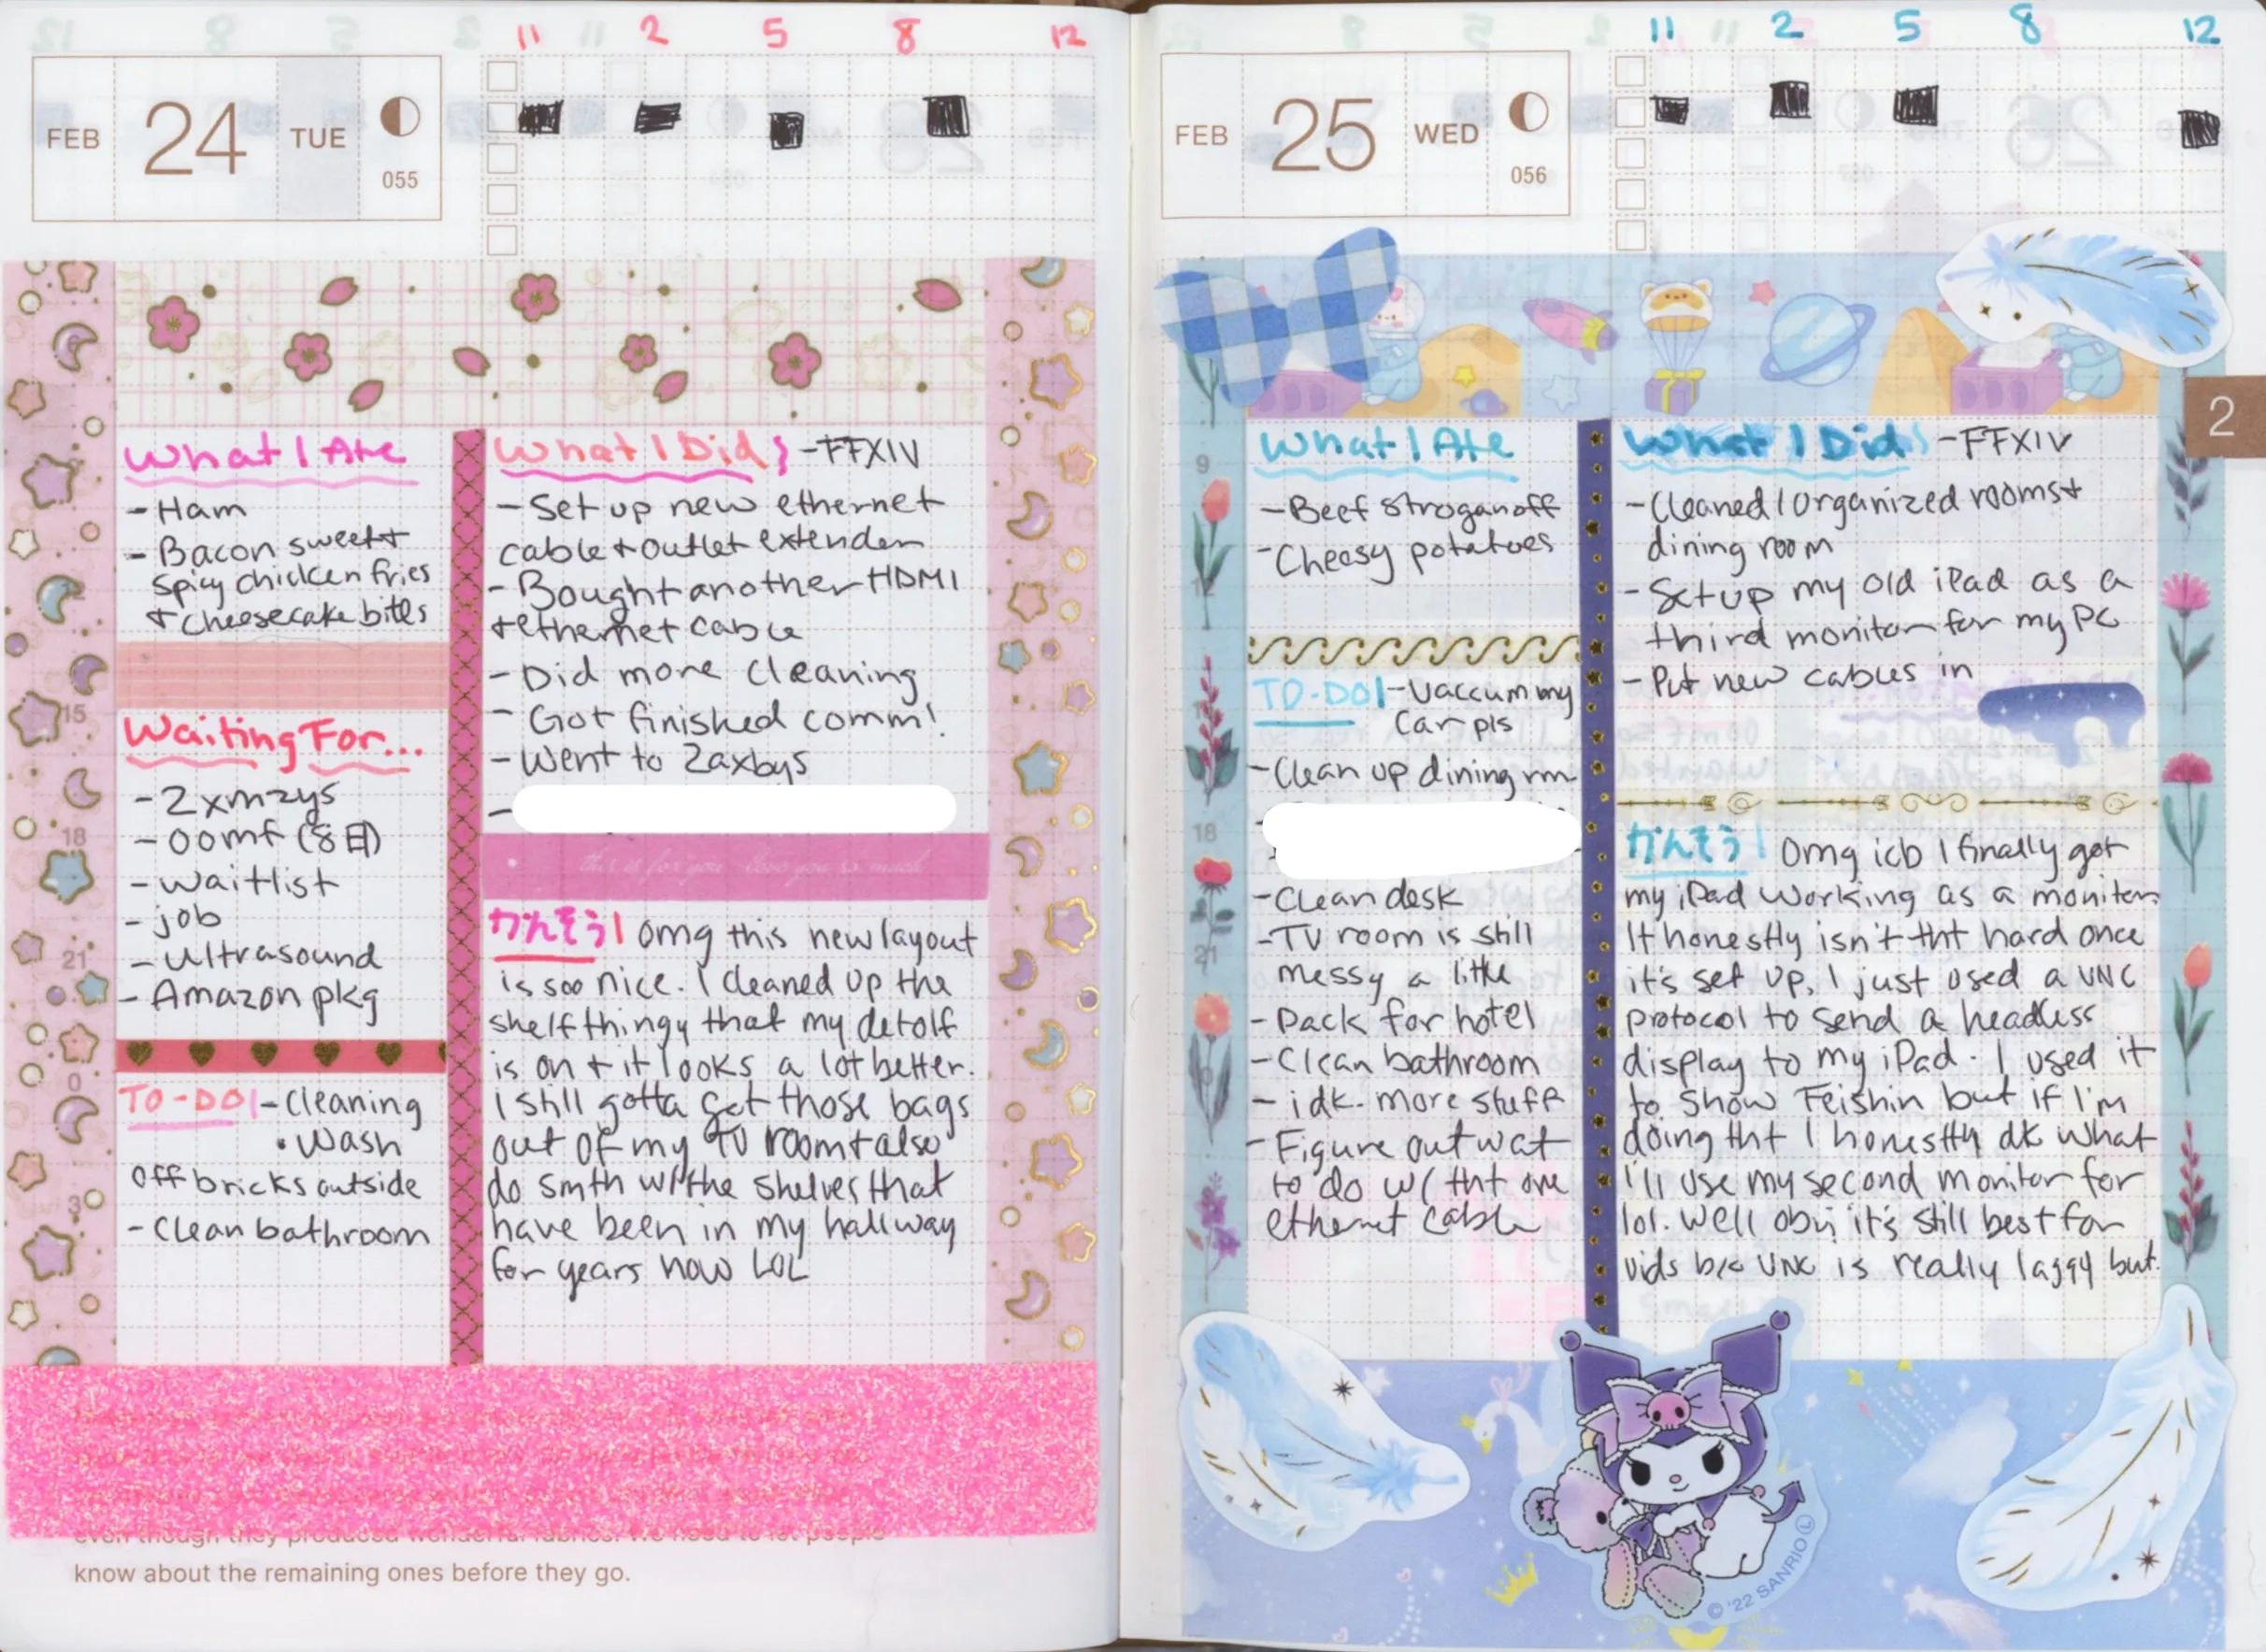 11 2 5 8 12
FEB 24 TUE
055
What I Ate
- Ham
- Bacon sweet +
spicy chicken fries
+ cheesecake bites
Waiting For...
- 2xmzys
- oomf (8日)
- waitlist
- job
- Ultrasound
- Amazon pkg
TO-DO - Cleaning
• Wash
off bricks outside
- Clean bathroom
15
18
21
0
3
What I Did - FFXIV
- Set up new ethernet
cable + outlet extender
- Bought another HDMI
+ ethernet cable
- Did more cleaning
- Got finished comm!
- Went to Zaxbys
-
this is for you love you so much
かんそう omg this new layout
is soo nice. I cleaned up the
shelf thingy that my detolf
is on + it looks a lot better.
I still gotta get those bags
out of my TV room + also
do smth w/ the shelves that
have been in my hallway
for years now LOL
even though they produced wonderful fabrics. We need to let people
know about the remaining ones before they go.
11 2 5 8 12
FEB 25 WED
056
2
9
12
18
21
What I Ate
- Beef stroganoff
- Cheesy potatoes
TO-DO - Vaccum my
car pls
- Clean up dining rm
- Clean desk
- TV room is still
messy a little
- Pack for hotel
- Clean bathroom
- idk. more stuff
- Figure out wat
to do w/ tht one
ethernet cable
What I Did - FFXIV
- Cleaned / Organized rooms +
dining room
- Set up my old iPad as a
third monitor for my PC
- Put new cables in
かんそう Omg icb I finally got
my iPad working as a monitor.
It honestly isn't tht hard once
it's set up, I just used a VNC
protocol to send a headless
display to my iPad. I used it
to show Feishin but if I'm
doing tht I honestly dk what
I'll use my second monitor for
lol. Well obvi it's still best for
vids b/c VNC is really laggy but.
© '22 SANRIO Ⓛ